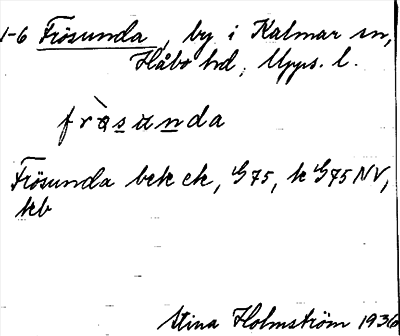 1-6 Frösunda, by i Kalmar sn,
Håbo hd, Upps. l.
fròsunda
Frösunda bek ek, G75, k G75NV,
kb
Stina Holmström 1936